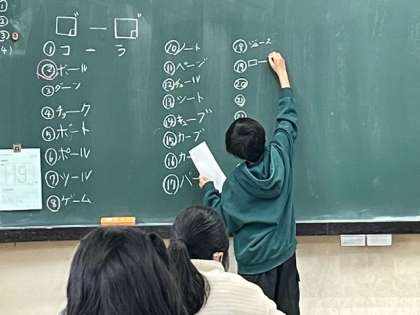 □ー□
① コーラ
② ボール
③ ダーツ
④ チョーク
⑤ ボート
⑥ ポール
⑦ ツール
⑧ ゲーム
⑩ ノート
⑪ ページ
⑫ チュール
⑬ シート
⑭ キューブ
⑮ カーブ
⑯ カー
⑰ バー
⑱ ジュース
⑲ ロー
⑳
㉑